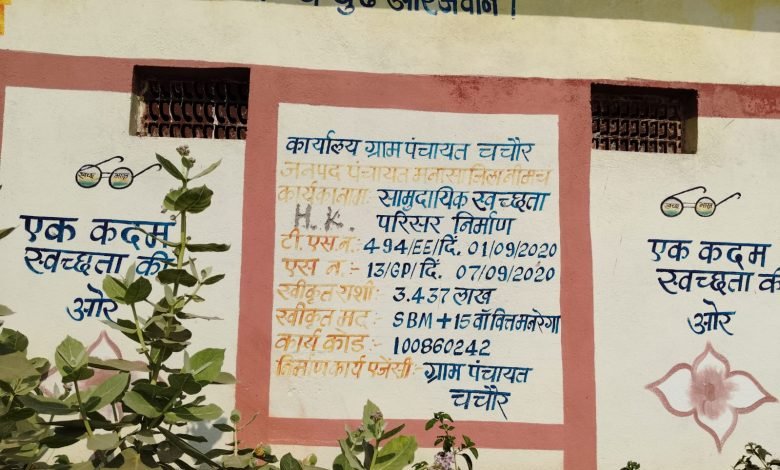 कार्यालय ग्राम पंचायत चचौर
जनपद पंचायत मनासा जिला नीमच
कार्य का नाम:- सामुदायिक स्वच्छता
H.K. परिसर निर्माण
टी.एस.न.:- 494/EE/दि. 01/09/2020
एस न.:- 13/GP/दि. 07/09/2020
स्वीकृत राशी:- 3.437 लाख
स्वीकृत मद:- SBM+15 वॉ वित्त मनरेगा
कार्य कोड:- 100860242
निर्माण कार्य एजेंसी:- ग्राम पंचायत
चचौर
स्वच्छ भारत
एक कदम
स्वच्छता की
ओर
स्वच्छ भारत
एक कदम
स्वच्छता की
ओर